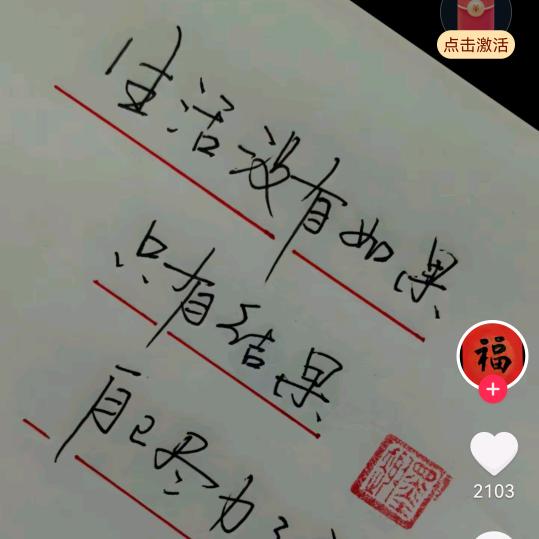 点击激活
生活没有如果
只有结果
自己尽力
福
2103